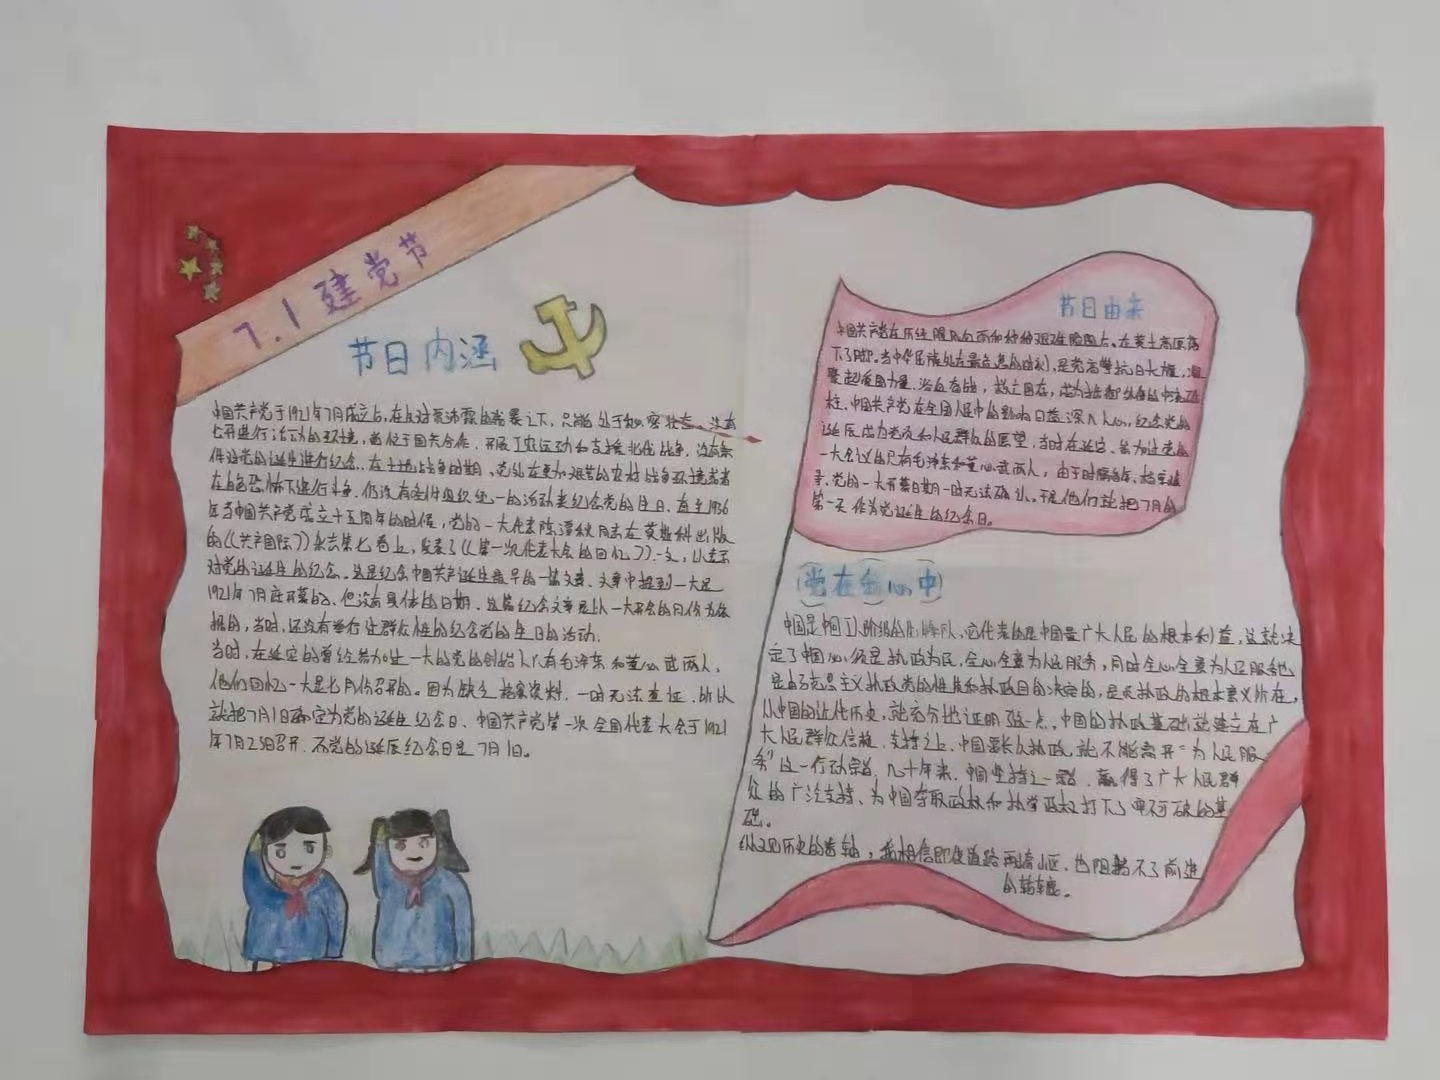 7.1建党节
节日内涵
中国共产党于1921年7月成立后,在反对
七开进行活动的环境,首次于国共合作,开展工农运动和支援北伐战争,没有条
件对党的诞生进行纪念,在土地战争时期,党处在更加艰苦的农村战争环境或者
在白色恐怖下进行斗争,仍没有条件组织统一的活动来纪念党的生日,直至1936
年当中国共产党成立十五周年的时候,党的一大代表陈潭秋同志在莫斯科出版
的《共产国际》杂志第七卷上,发表了《第一次代表大会的回忆》一文,以表示
对党的诞生的纪念。这是纪念中国共产诞生最早的一篇文章、文章中提到一大是
1921年7月底开幕的、但没有具体的日期,这篇纪念文章是以一大开会的月份为依
据的,当时,还没有举行过群众性的纪念党的生日的活动.
当时,在延安的曾经参加过一大的党的创始人有毛泽东和董必武两人,
他们回忆一大是七月份召开的。因为缺乏档案资料,一时无法查证,所以
就把7月1日确定为党的诞生纪念日、中国共产党第一次全国代表大会于1921
年7月23日召开、而党的诞辰纪念日是7月1日。
节日由来
中国共产党在历经腥风血雨和种种艰难险阻后、在黄土高原落
下了脚。当中华民族处在最危急的时刻,是党高擎抗日大旗,凝
聚起爱国力量,浴血奋战,救亡图存,成为
柱、中国共产党在全国人民中的影响日益深入人心,纪念党的
诞辰成为党员和人民群众的愿望,当时在延安、参加过党的
一大会议的只有毛泽东和董必武两人,由于时隔
党的一大开幕日期一时无法确认。于是他们就把7月的
第一天作为党诞生的纪念日。
党在我心中
中国是中国工人阶级的先锋队,它代表的是中国最广大人民的根本利益,这就决
定了中国必须是执政为民,全心全意为人民服务,同时全心全意为人民服务也
是由马克思主义执政党的性质和执政目的决定的,是党执政的根本意义所在,
从中国的近代历史,就充分地证明了这一点,中国的执政基础就建立在广
大人民群众信赖,支持之上、中国要长久执政,就不能离开"为人民服
务"这一行动宗旨,几十年来,中国坚持这一宗旨,赢得了广大人民群
众的广泛支持、为中国夺取政权和执掌政权打下了牢不可破的基
础。
历史的巷轴,我相信即使道路再崎岖,也阻挡不了前进
的转轮。